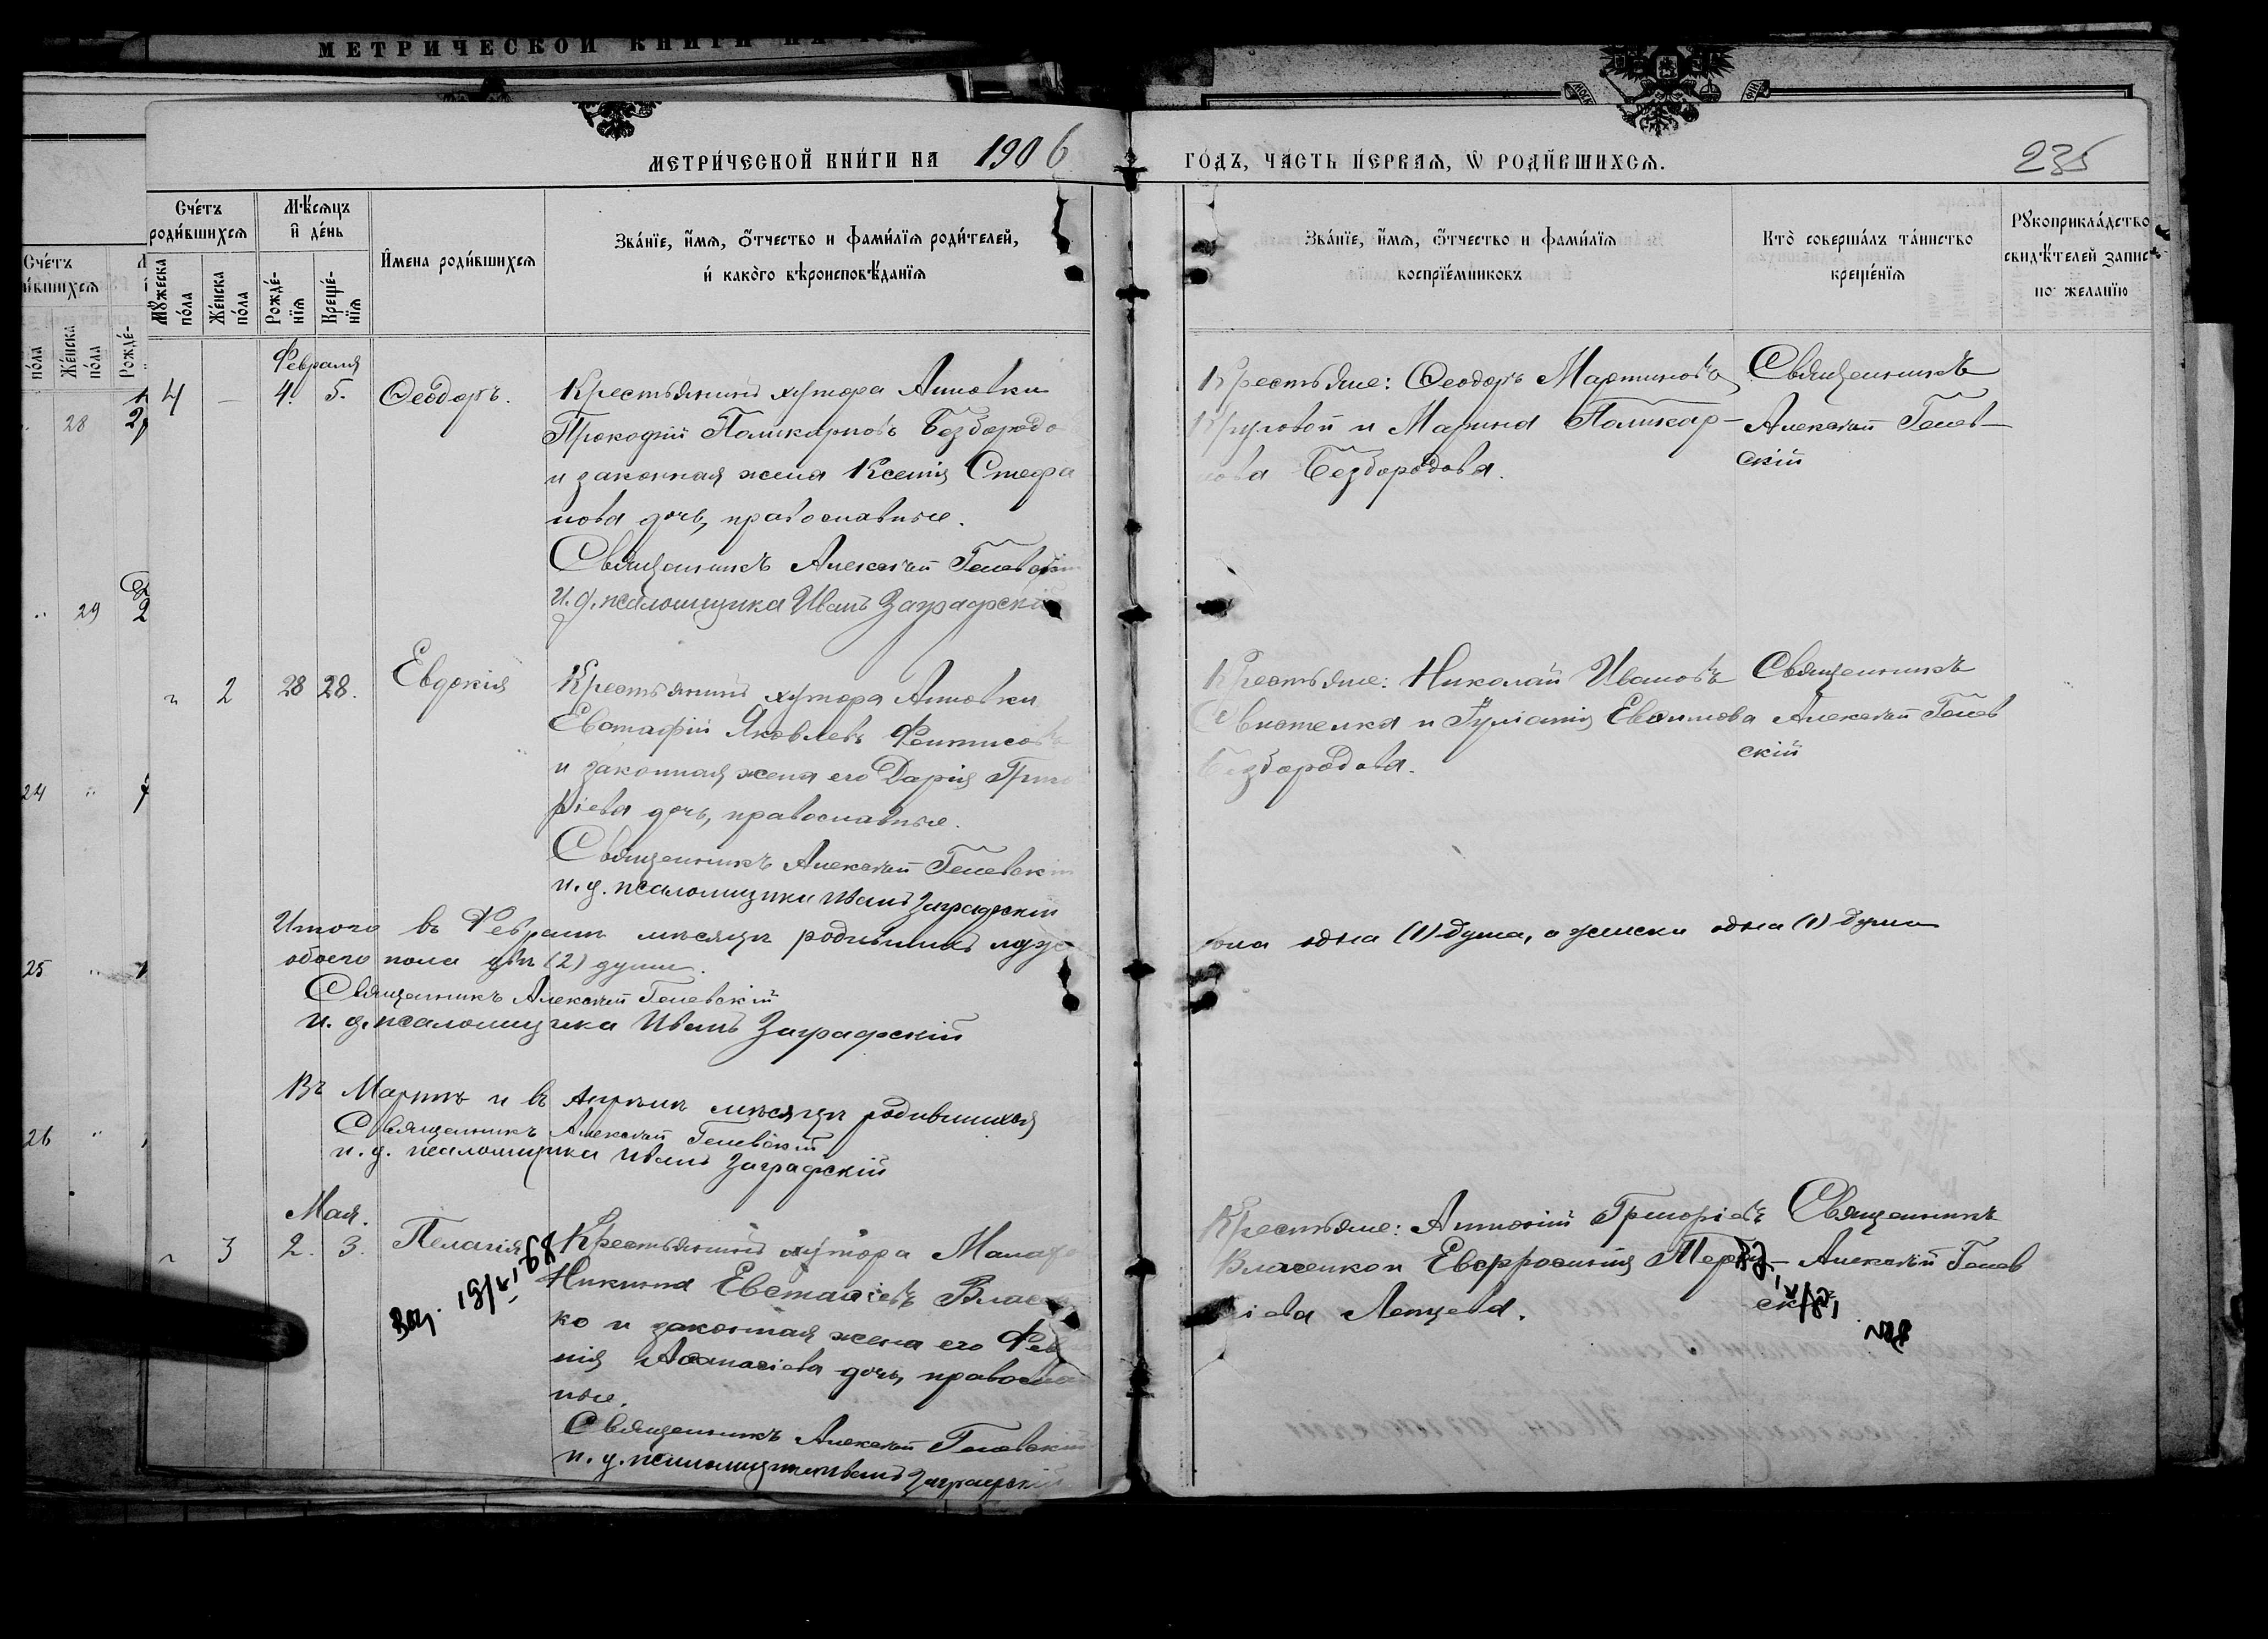 МЕТРИЧЕСКОЙ КНИГИ НА
МЕТРИ́ЧЕСКОЙ КНИ́ГИ НА 1906
ГО́ДЪ, ЧА́СТЬ ПЕ́РВАЯ, Ѡ РОДИ́ВШИХСЯ.
235
Сче́тъ роди́вшихся
Мѣ́сяцъ и де́нь
И́мена роди́вшихся
Зва́нїе, и҆́мя, о҆́тчество и фами́лїя роди́телей,
и́ како́го вѣроисповѣ́данїя
Зва́нїе, и҆́мя, о҆́тчество и фами́лїя
воспрїе́мниковъ
Кто̀ соверша́лъ та́инство
креще́нїя
Рꙋкоприкла́дство
свидѣ́телей запис
по жела́нїю
Мꙋ́жеска по́ла
Же́нска по́ла
Рожде́нїя
Креще́нїя
Февраля
4 — 4. 5. Ѳеодоръ.
Крестьянинъ хутора Анновки
Прокофій Поликарповъ Безбородо
и законная жена Ксенія Стефа
нова дочь, православные.
Священникъ Алексѣй Геневскій
И. д. псаломщика Иванъ Заграфскій
Крестьяне: Ѳеодоръ Мартиновъ
Круговой и Марина Поликар-
пова Безбородова.
Священникъ
Алексѣй Генев-
скій
" 2 28 28. Евдокія
Крестьянинъ хутора Анновки
Евстафій Яковлевъ Фентисовъ
и законная жена его Дарія Григо
ріева дочь, православные.
Священникъ Алексѣй Геневскій
и. д. псаломщика Иванъ Заграфскій
Крестьяне: Николай Ивановъ
и Гуліанія Евѳимова
Безбородова.
Священникъ
Алексѣй Генев
скій
Итого въ Февралѣ мѣсяцѣ родившихъ муже
ска одна (1) душа, а женска одна (1) душа
обоего пола двѣ (2) души.
Священникъ Алексѣй Геневскій
и. д. псаломщика Иванъ Заграфскій
Въ Мартѣ и въ Апрѣлѣ мѣсяцѣ родившихся
Священникъ Алексѣй Геневскій
и. д. псаломщика Иванъ Заграфскій
Мая.
" 3 2. 3. Пелагія
Крестьянинъ хутора
Никита Евстаѳіевъ Власен
ко и законная жена его Фев
нія Аѳанасіева дочь, православ
ные.
Священникъ Алексѣй Геневскій
и. д. псаломщика Иванъ Заграфскій
Крестьяне: Антоній Григоріевъ
Власенко и Евфросинія
іева Лепцева.
Священникъ
Алексѣй Генев
скій
28
29
24
25
26